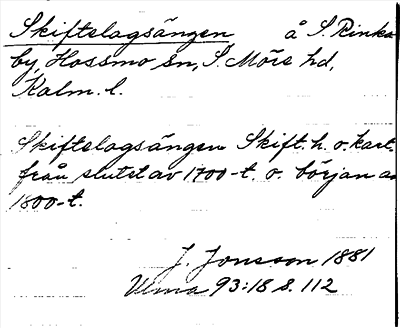 Skiftelagsängen å S. Rinka
by, Hossmo sn, S. Möre hd,
Kalm. l.
Skiftelagsängen Skift. h. o. kart.
från slutet av 1700-t. o. början a
1800-t.
J. Jonsson 1881
Ulma 93:18 s. 112